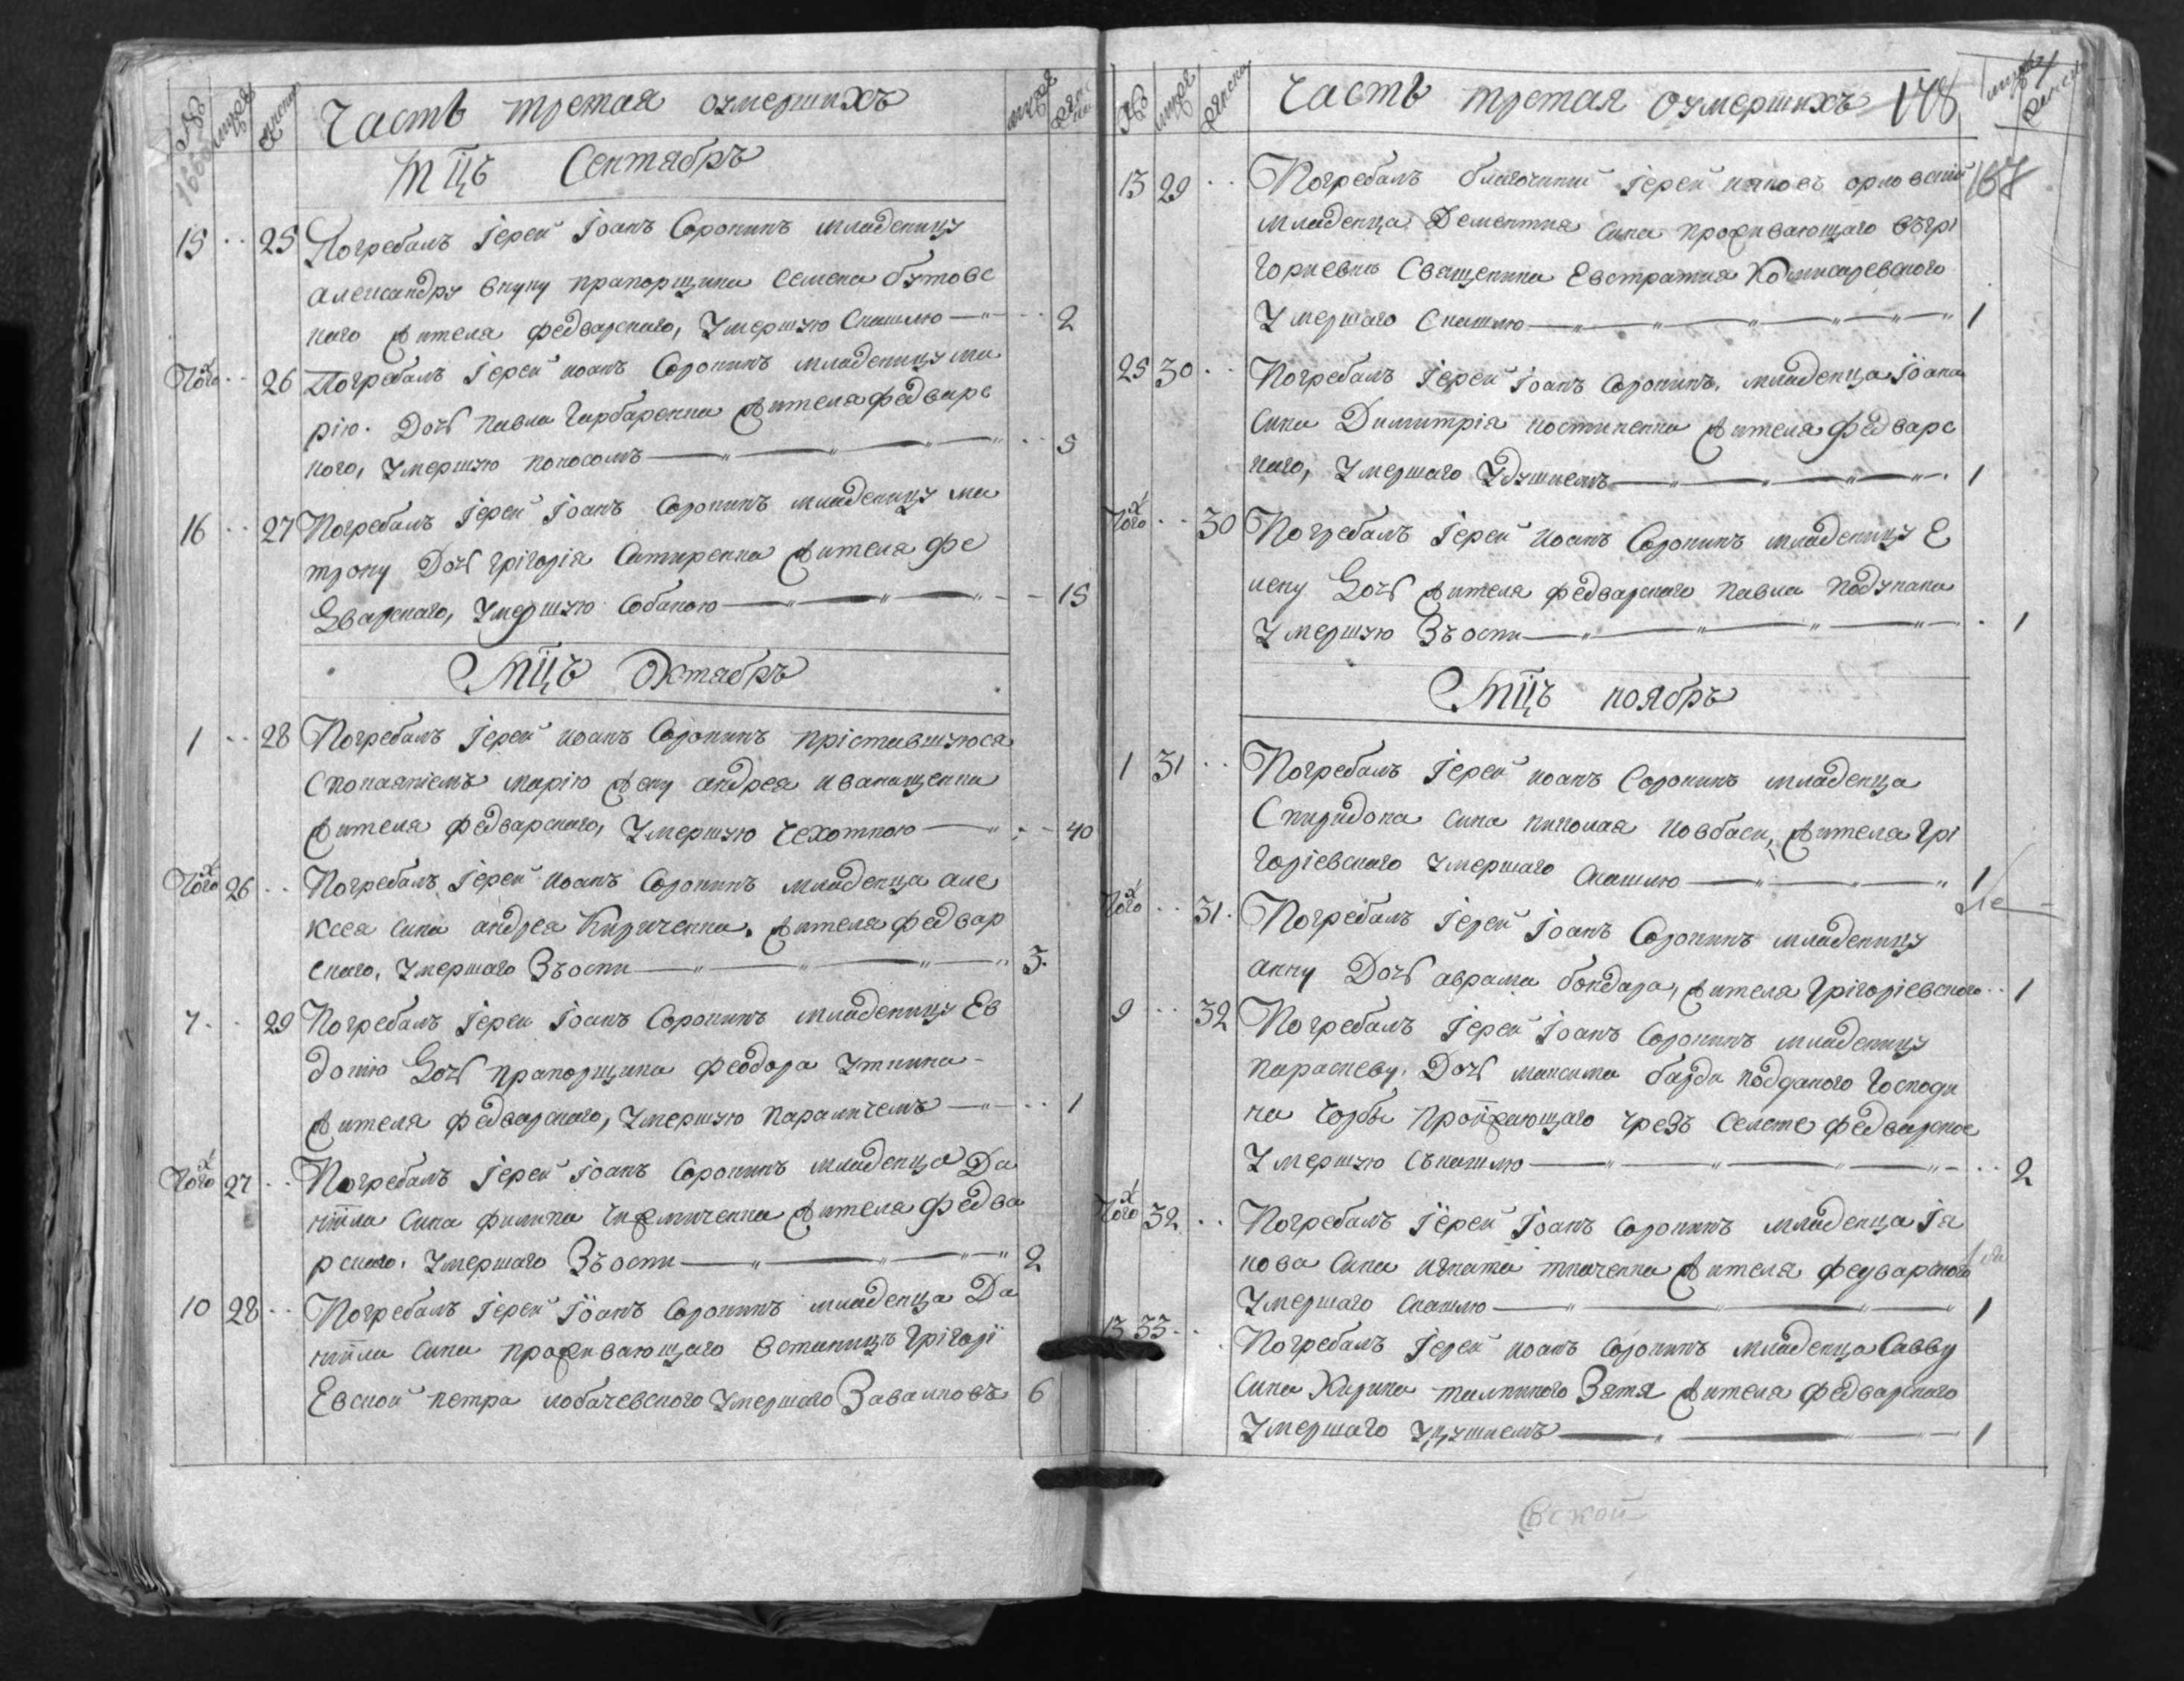 Часть третая оумершихъ
мцъ Сентябръ
15 25 Погребалъ Іерей Іоанъ Сорокинъ младеницу
александру внуку прапорщика Семена бутовс
каго жителя федварскаго, Умершую Скашлю 2
Тогож 26 Погребалъ Іерей иоанъ Сорокинъ младеницу ма
рію. Дочь павла Гарбаренка жителя федварс
кого, Умершую поносомъ 5
16 27 Погребалъ Іерей Іоанъ Сорокинъ младеницу ма
трону Дочь Григорія Ситиренка жителя Фе
Дварскаго, Умершую Собакою 15
Мцъ Октябръ
1 28 Погребалъ Іерей иоанъ Сорокинъ пріставшуюся
Спокаяніемъ марію жену андрея иванищенка
жителя федварскаго, Умершую Чехоткою 40
Тогож 26 Погребалъ Іерей иоанъ Сорокинъ младенца але
ксея сина андрея Кириченка. жителя федвар
скаго, Умершаго Зъоспи 3
7 29 Погребалъ Іерей Іоанъ Сорокинъ младеницу Ев
докию Дочь прапорщика Феодора Уткина
жителя федварскаго, Умершую параличемъ 1
Тогож 27 Погребалъ Іерей Іоанъ Сорокинъ младенца Да
ниила Сина филипа жителя федва
рскаго. Умершаго Зъоспи 2
10 28 Погребалъ Іерей Іоанъ Сорокинъ младенца Да
ниила Сина проживающаго встаницъ Грігорі
Евской петра лобачевского Умершаго Завалковъ 6
Часть третая Оумершихъ 148
167
13 29 Погребалъ благочиний Іерей иаковъ орловский
младенца Дементия Сина проживающаго въгрі
гориевки Священика Евстратия Комисаревского
Умершаго Скашлю 1
25 30 Погребалъ Іерей Іоанъ Сорокинъ, младенца Іоана
Сина Димитрія костиненка жителя федварс
каго, Умершаго Удушиемъ 1
Тогож 30 Погребалъ Іерей иоанъ Сорокинъ младеницу Е
лену Дочь жителя федварскаго павла подупана
Умершую Зъоспи 1
Мцъ ноябръ
1 31 Погребалъ Іерей иоанъ Сорокинъ младенца
Спиридона сина николая ковбаси, жителя Грі
горіевскаго Умершаго Скашлю 1
Тогож 31 Погребалъ Іерей Іоанъ Сорокинъ младеницу
анну Дочь аврама бондара, жителя Грігоріевского 1
9 32 Погребалъ Іерей Іоанъ Сорокинъ младеницу
параскеву. Дочь максима барди подданого Господи
на Чорби чрезъ Селеше федварское
Умершую Съкашлю 2
Тогож 32 Погребалъ Іерей Іоанъ Сорокинъ младенца Іа
кова Сина игната ткаченка жителя федварского
Умершаго Скашлю 1
13 33 Погребалъ Іерей иоанъ Сорокинъ младенца Савву
Сина Кирика Зятя жителя федварского
Умершаго Удушиемъ 1
вской